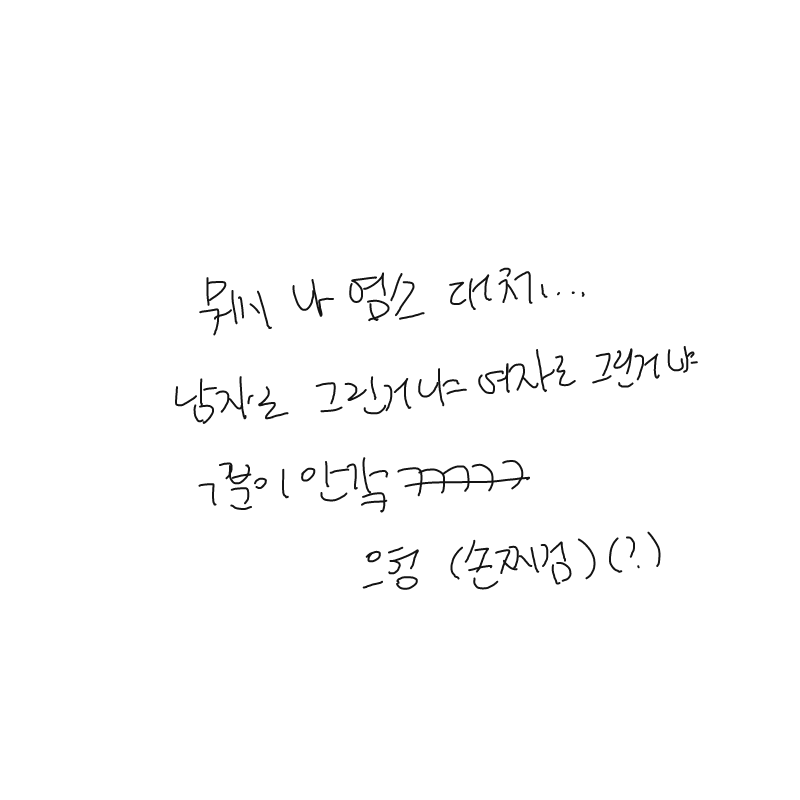 뭐시 나 염소 대처...
남자로 그린거냐 여자로 그린거냐
구분이 안감 ㅋㅋㅋㅋㅋ
으헝 (손찌검) (?)